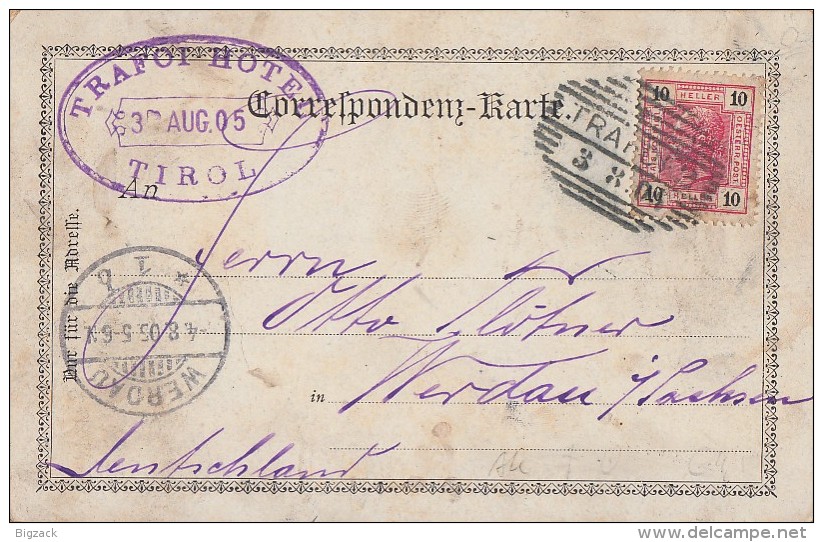 TRAFOI HOTEL
3 AUG.05
TIROL
Correspondenz-Karte.
TRAF
3 8
10 HELLER 10
OESTERR. POST
10 HELLER 10
An
Herrn
Otto
in Werdau i/Sachsen
Deutschland
Nur für die Adresse.
WERDAU
-4.8.05.5-6
Bigzack
delcampe.net